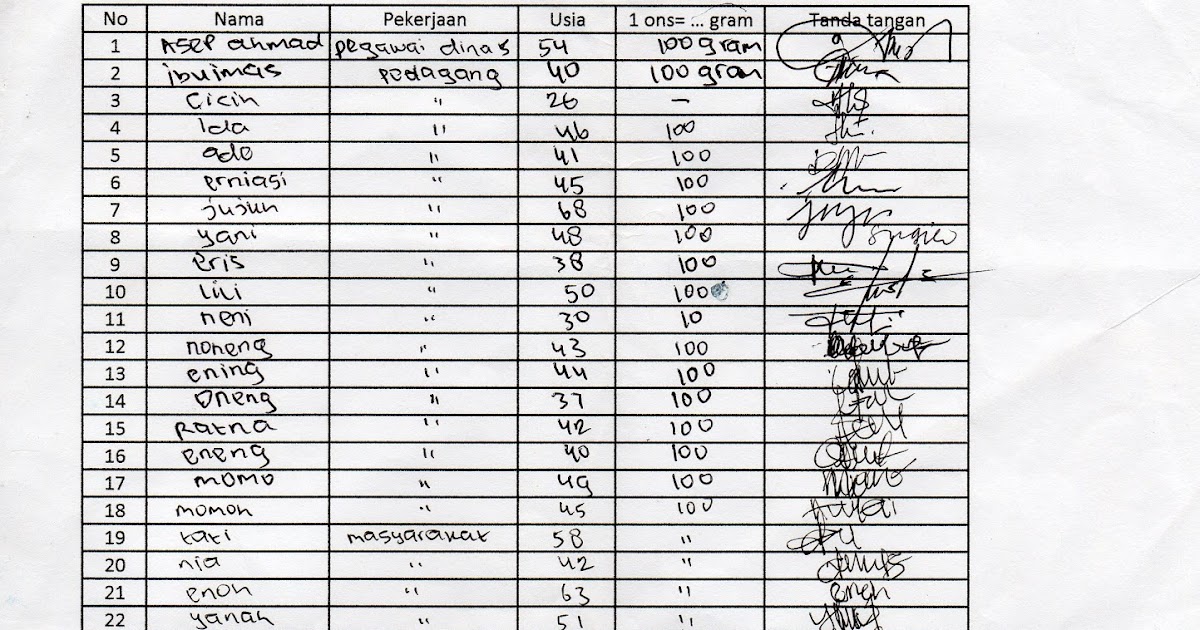 No Nama Pekerjaan Usia 1 ons= ... gram Tanda tangan
1 Asep ahmad pegawai dinas 54 100 gram
2 ibuimas pedagang 40 100 gram
3 Cicih " 26 –
4 Ida " 46 100
5 ade " 41 100
6 erniasi " 45 100
7 jujun " 68 100
8 yani " 48 100
9 eris " 38 100
10 lili " 50 100
11 neni " 30 10
12 noneng " 43 100
13 ening " 44 100
14 Oneng " 37 100
15 Ratna " 42 100
16 eneng " 40 100
17 momo " 49 100
18 momoh " 45 100
19 tati masyarakat 58 "
20 nia " 42 "
21 enoh " 63 " enoh
22 yanah " 51 "